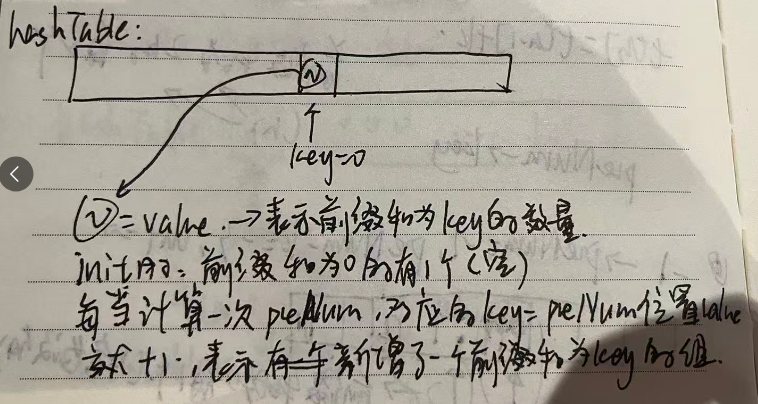 hashTable:
N
↑
key=0
N = value. → 表示前缀和为key的数量.
init时: 前缀和为0的有1个(空)
每当计算一次 preNum, 对应的key=preNum位置value
就+1, 表示新增了一个前缀和为key的组.